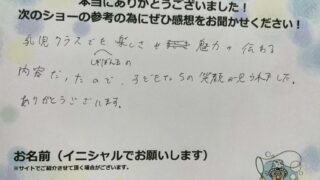 本当にありがとうございました！
次のショーの参考の為にぜひ感想をお聞かせください！
乳児クラスでも楽しさ 魅力が伝わる
しゃぼん玉の
内容だったので、子どもたちの笑顔が見られました。
ありがとうございます。
お名前（イニシャルでお願いします）
※サイトでご紹介させて頂く場合がございます。